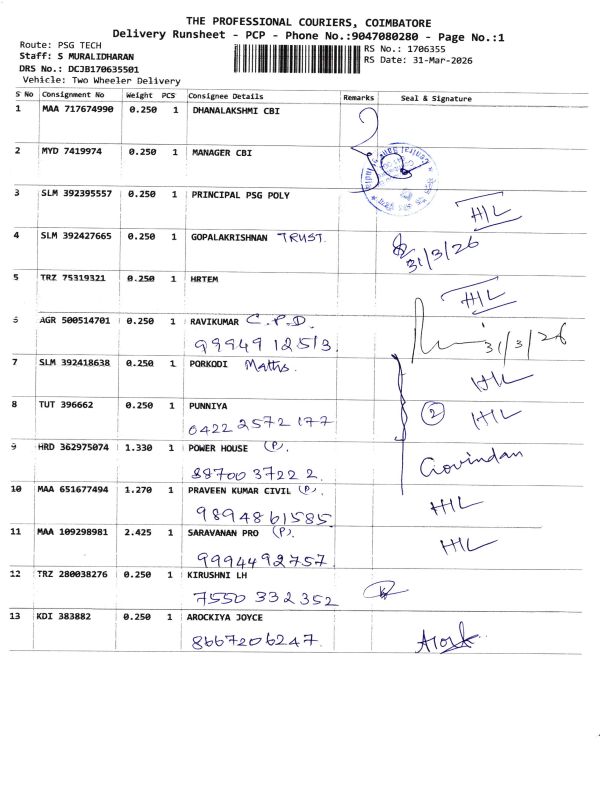 THE PROFESSIONAL COURIERS, COIMBATORE
Delivery Runsheet - PCP - Phone No.:9047080280 - Page No.:1
Route: PSG TECH
RS No.: 1706355
Staff: S MURALIDHARAN
RS Date: 31-Mar-2026
DRS No.: DCJB170635501
Vehicle: Two Wheeler Delivery
S No Consignment No Weight PCS Consignee Details Remarks Seal & Signature
1 MAA 717674990 0.250 1 DHANALAKSHMI CBI
2 MYD 7419974 0.250 1 MANAGER CBI
3 SLM 392395557 0.250 1 PRINCIPAL PSG POLY H/L
4 SLM 392427665 0.250 1 GOPALAKRISHNAN TRUST. 31/3/26
5 TRZ 75319321 0.250 1 HRTEM H/L
6 AGR 500514701 0.250 1 RAVIKUMAR C.P.D.
99949 12513. 31/3/26
7 SLM 392418638 0.250 1 PORKODI Maths. H/L
8 TUT 396662 0.250 1 PUNNIYA 2 H/L
0422 2572 177
9 HRD 362975074 1.330 1 POWER HOUSE (P). Govindan
88700 37222.
10 MAA 651677494 1.270 1 PRAVEEN KUMAR CIVIL (P). H/L
9894861585
11 MAA 109298981 2.425 1 SARAVANAN PRO (P). H/L
9994492757
12 TRZ 280038276 0.250 1 KIRUSHNI LH
7550 332352
13 KDI 383882 0.250 1 AROCKIYA JOYCE
8667206247.